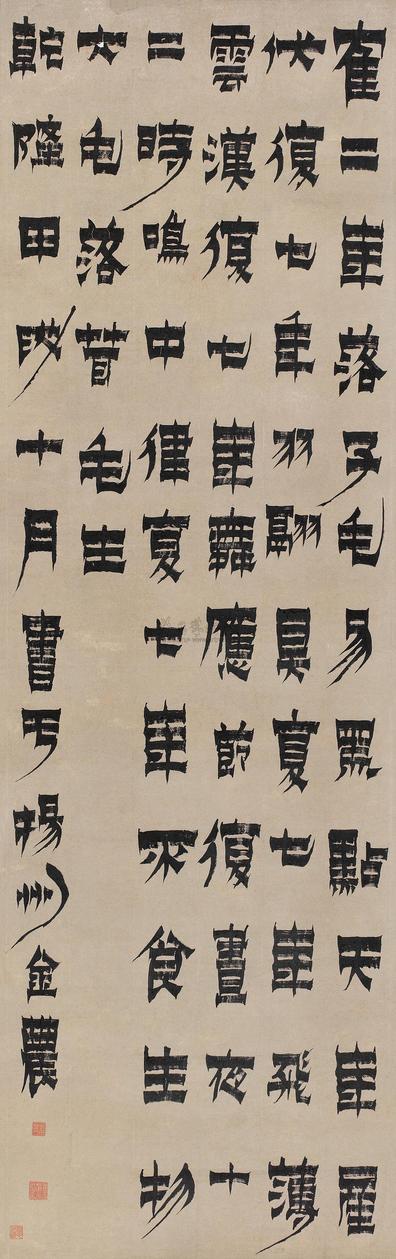 隺二年落子毛易黑點天年產
伏復七年羽翮具复七年飛薄
雲漢復七年舞應節復晝夜十
二時鳴中律复七年不食生物
大毛落茸毛生
乾隆甲十月書于楊州金農